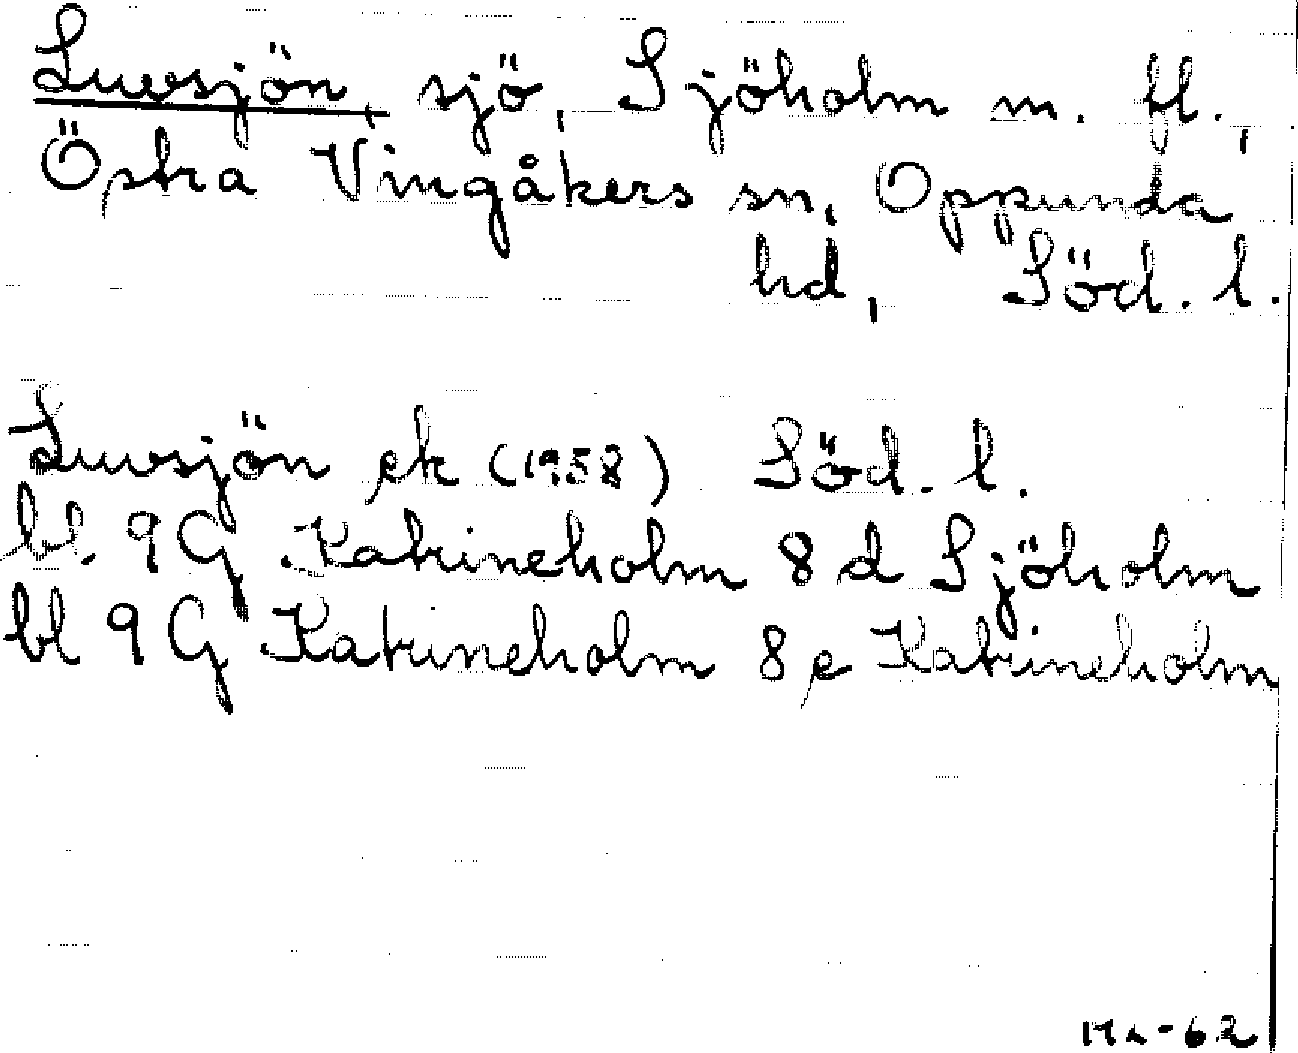 Luvsjön, sjö, Sjöholm m. fl.,
Östra Vingåkers sn, Oppunda
hd, Söd. l.
Luvsjön ek (1958) Söd. l.
bl. 9G Katrineholm 8 d Sjöholm
bl 9G Katrineholm 8 e Katrineholm